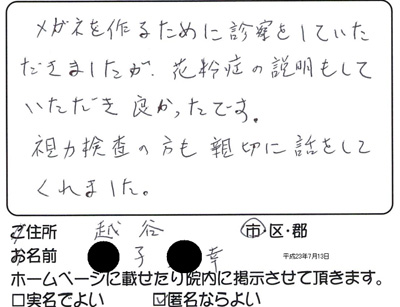 メガネを作るために診察をしていた
だきましたが、花粉症の説明もして
いただき良かったです。
視力検査の方も親切に話をして
くれました。
ご住所 越谷 市・区・郡
お名前 子 幸 平成23年7月13日
ホームページに載せたり院内に掲示させて頂きます。
□実名でよい ☑匿名ならよい